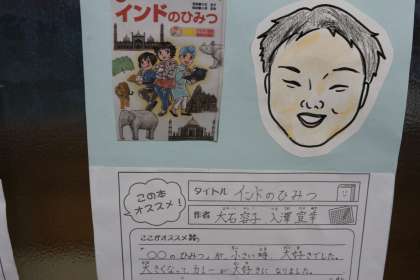 インドのひみつ
この本
オススメ！
タイトル インドのひみつ
作者 大石容子 入澤宣幸
ここがオススメ
「○○のひみつ」が、小さい時、大好きでした。
大きくなって、カレーが大好きになりました。